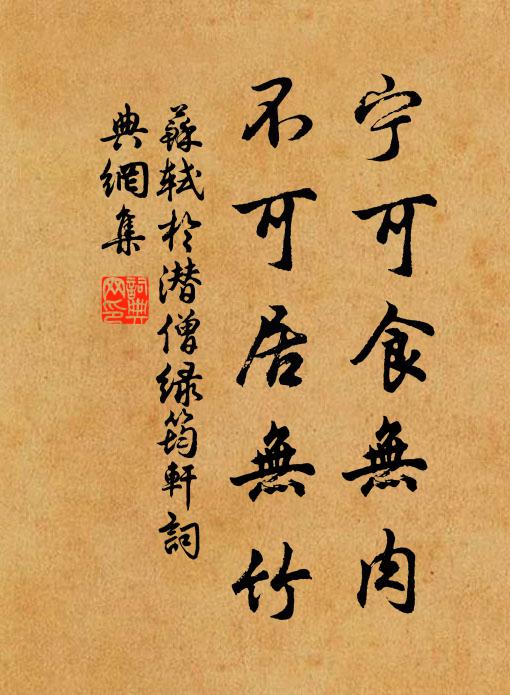 宁可食無肉
不可居無竹
蘇軾於潜僧緑筠軒詞
典網集
詞典網印